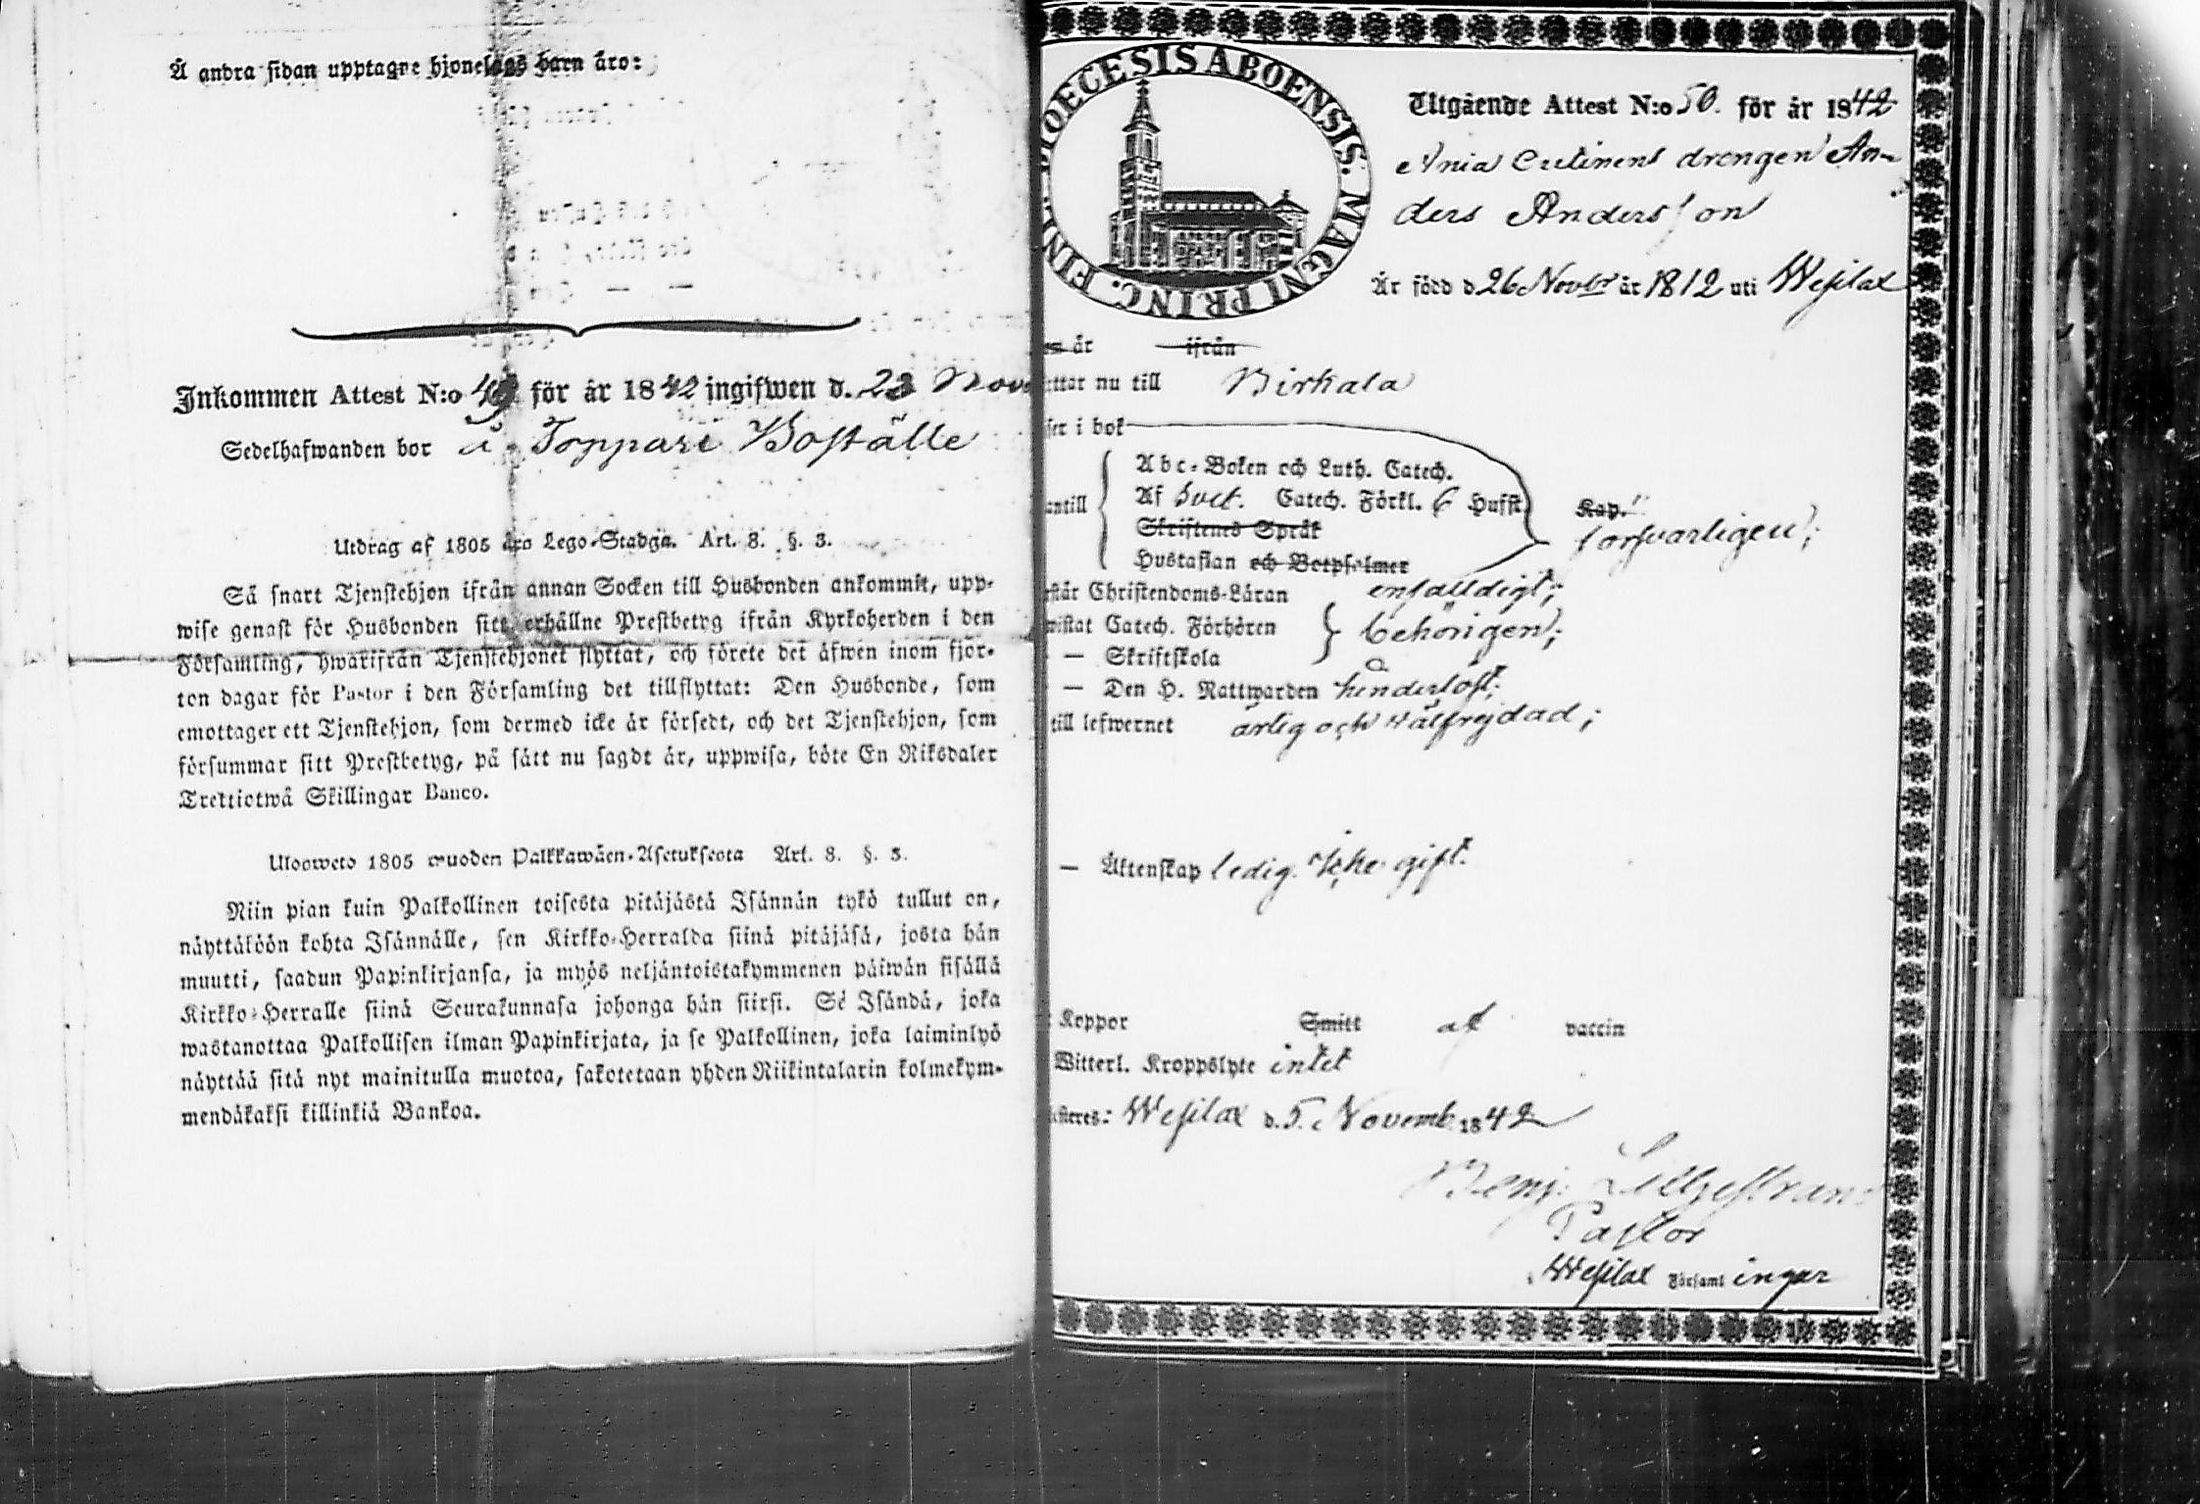 Å andra sidan upptagne hjonelags barn äro:
Inkommen Attest N:o för år 1842 ingifwen d. 23 Nov
Sedelhafwanden bor å Toppari Boställe
Utdrag af 1805 års Lego-Stadga. Art. 8. §. 3.
Så snart Tjenstehjon ifrån annan Socken till Husbonden ankommit, upp-
wise genast för Husbonden sitt erhållne Prestbetyg ifrån Kyrkoherden i den
Församling, hwarifrån Tjenstehjonet flyttat, och förete det äfwen inom fjor-
ton dagar för Pastor i den Församling det tillflyttat: Den Husbonde, som
emottager ett Tjenstehjon, som dermed icke är försedt, och det Tjenstehjon, som
försummar sitt Prestbetyg, på sätt nu sagdt är, uppwisa, böte En Riksdaler
Trettiotwå Skillingar Banco.
Ulosweto 1805 wuoden Palkkawäen-Asetuksesta Art. 8. §. 3.
Niin pian kuin Palkollinen toisesta pitäjästä Isännän tykö tullut on,
näyttäköön kohta Isännälle, sen Kirkko-Herralda siinä pitäjäsä, josta hän
muutti, saadun Papinkirjansa, ja myös neljäntoistakymmenen päiwän sisällä
Kirkko-Herralle siinä Seurakunnasa johonga hän siirsi. Se Isändä, joka
wastanottaa Palkollisen ilman Papinkirjata, ja se Palkollinen, joka laiminlyö
näyttää sitä nyt mainitulla muotoa, sakotetaan yhden Riikintalarin kolmekym-
mendäkaksi killinkiä Bankoa.
DIOECESIS ABOENSIS. MAGNI PRINC. FIN
Utgående Attest N:o 50. för år 1842
drengen An-
ders Andersson
Är född d. 26 Novbr år 1812 uti Wesilax
är ifrån
ttar nu till Birkala
ser i bok
antill
Abc-Boken och Luth. Catech.
Af Svet. Catech. Förkl. 6 Hufst. Kap.
Skriftenes Språk försvarligen;
Hustaflan och Botpsalmer
står Christendoms-Läran enfalldigt;
wistat Catech. Förhören behörigen;
— Skriftskola
— Den H. Nattwarden å hinderlöst;
till lefwernet ärlig och wälfrejdad;
— Äktenskap ledig. icke gift.
Koppor Smitt af vaccin
Witterl. Kroppslyte intet
steres: Wesilax d. 5. Novemb. 1842
Benj. Lilljestran
Pastor
Wesilax Församl ingar